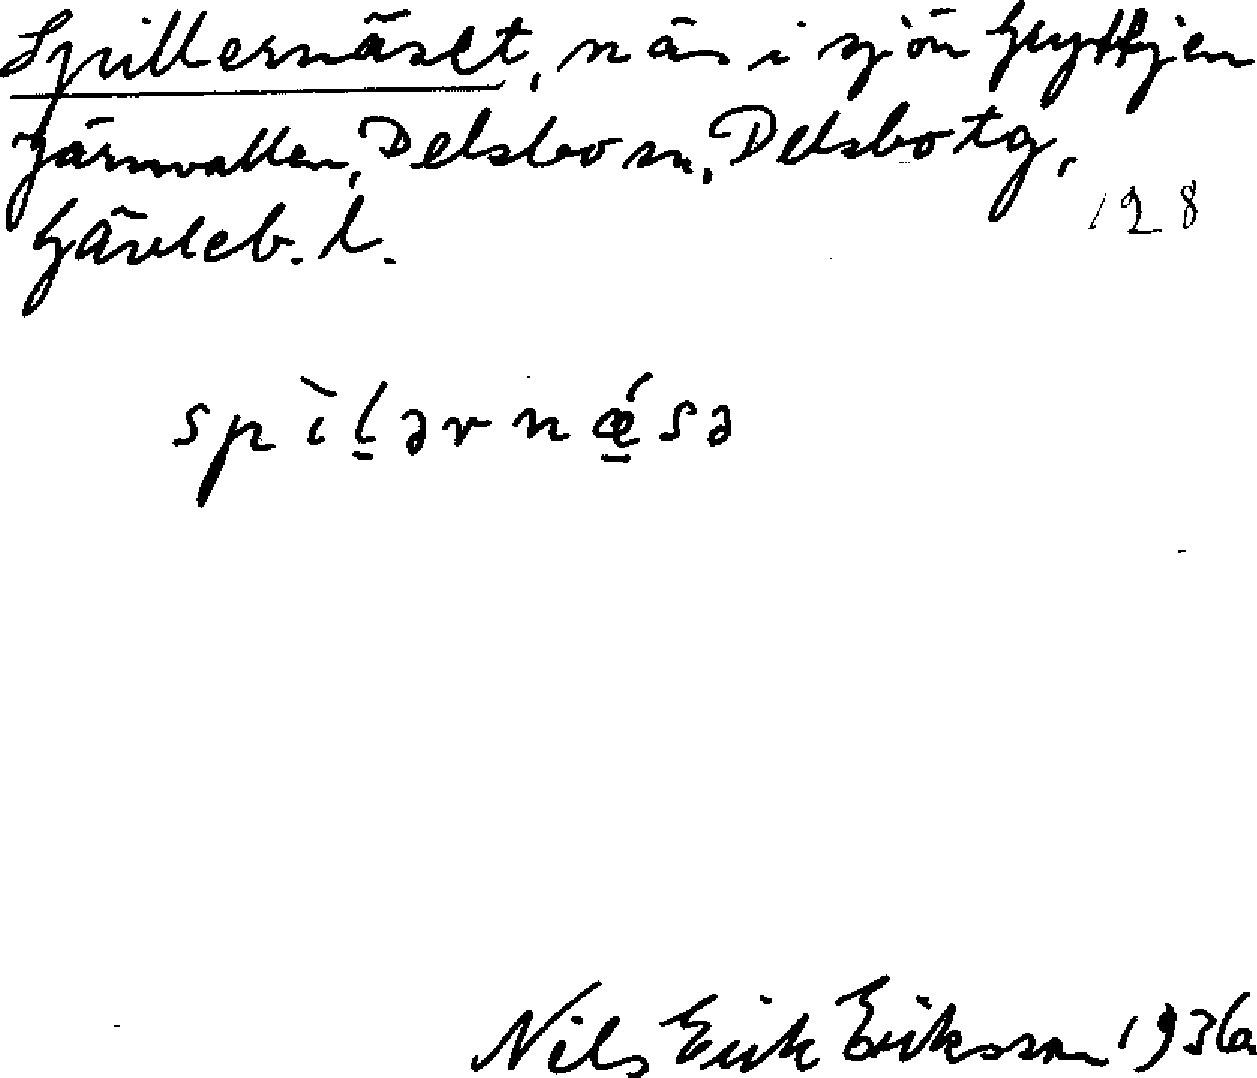 Spillernäset, näs i sjön Gryttjen
Järnvallen, Delsbo sn, Delsbo tg,
Gävleb. l.
128
spìl̠ərnǽ̠sə
Nils Erik Eriksson 1936